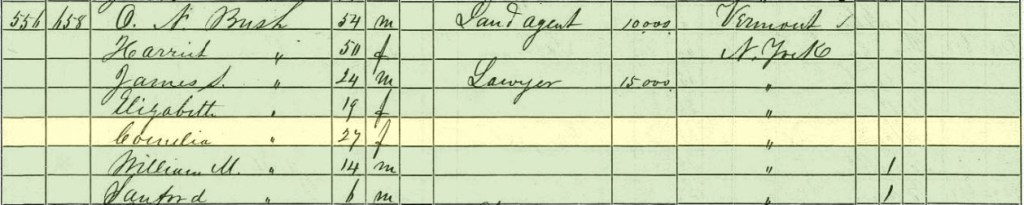 556 658 O. N. Bush 54 m Land agent 10000 Vermont /
Harriet " 50 f N. York
James S. " 24 m Lawyer 15000 "
Elizabeth " 19 f "
Cornelia " 27 f "
William M. " 14 m " 1
Sanford " 6 m " 1